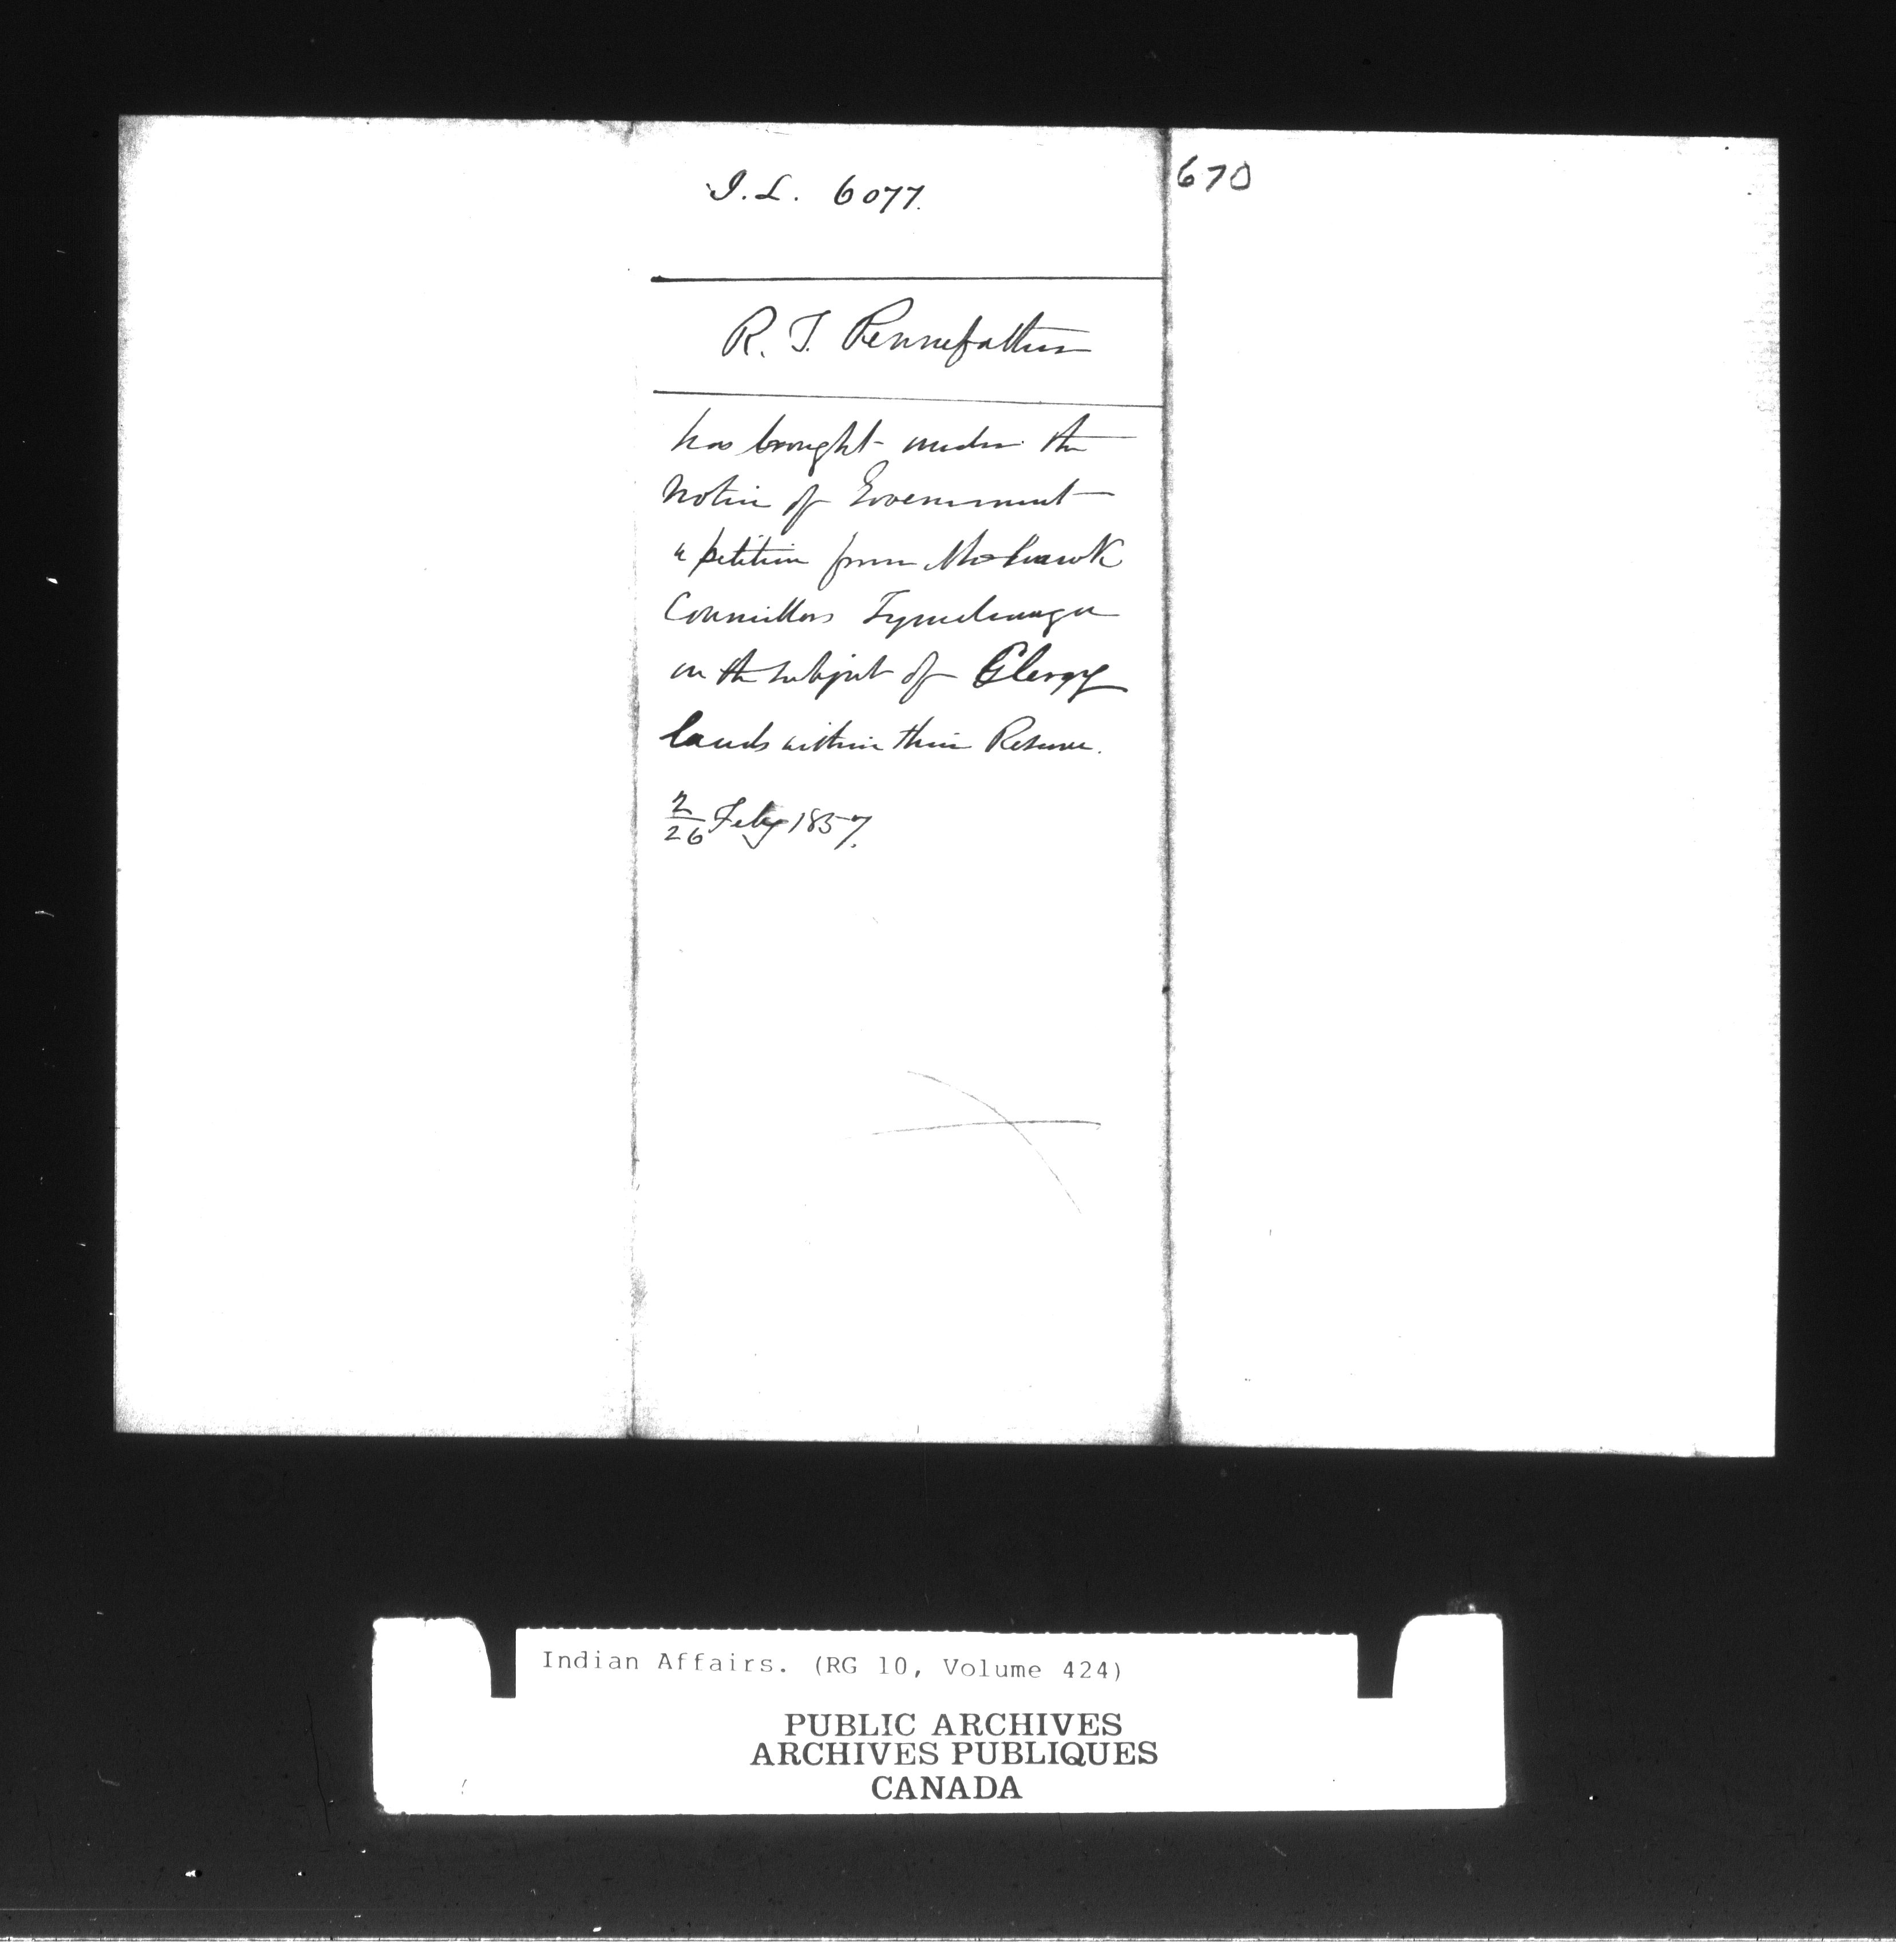 I.L. 6077.
670
R. T. Pennefather
has brought under the
notice of Government
a petition from Mohawk
Councillors Tyendinaga
on the subject of Clergy
lands within their Reserve.
2/26 Feby 1857.
Indian Affairs. (RG 10, Volume 424)
PUBLIC ARCHIVES
ARCHIVES PUBLIQUES
CANADA